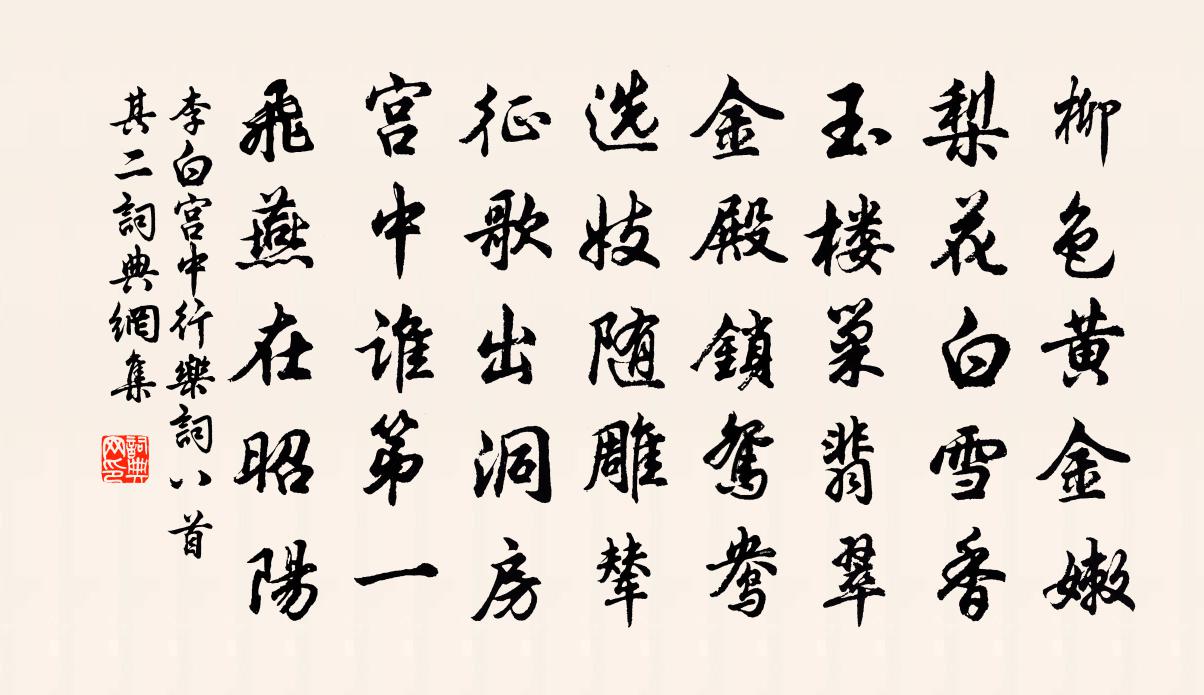 柳色黄金嫩
梨花白雪香
玉楼巢翡翠
金殿鎖鴛鴦
选妓随雕辇
征歌出洞房
宫中谁第一
飛燕在昭陽
李白宫中行樂詞八首
其二詞典網集
詞典网印